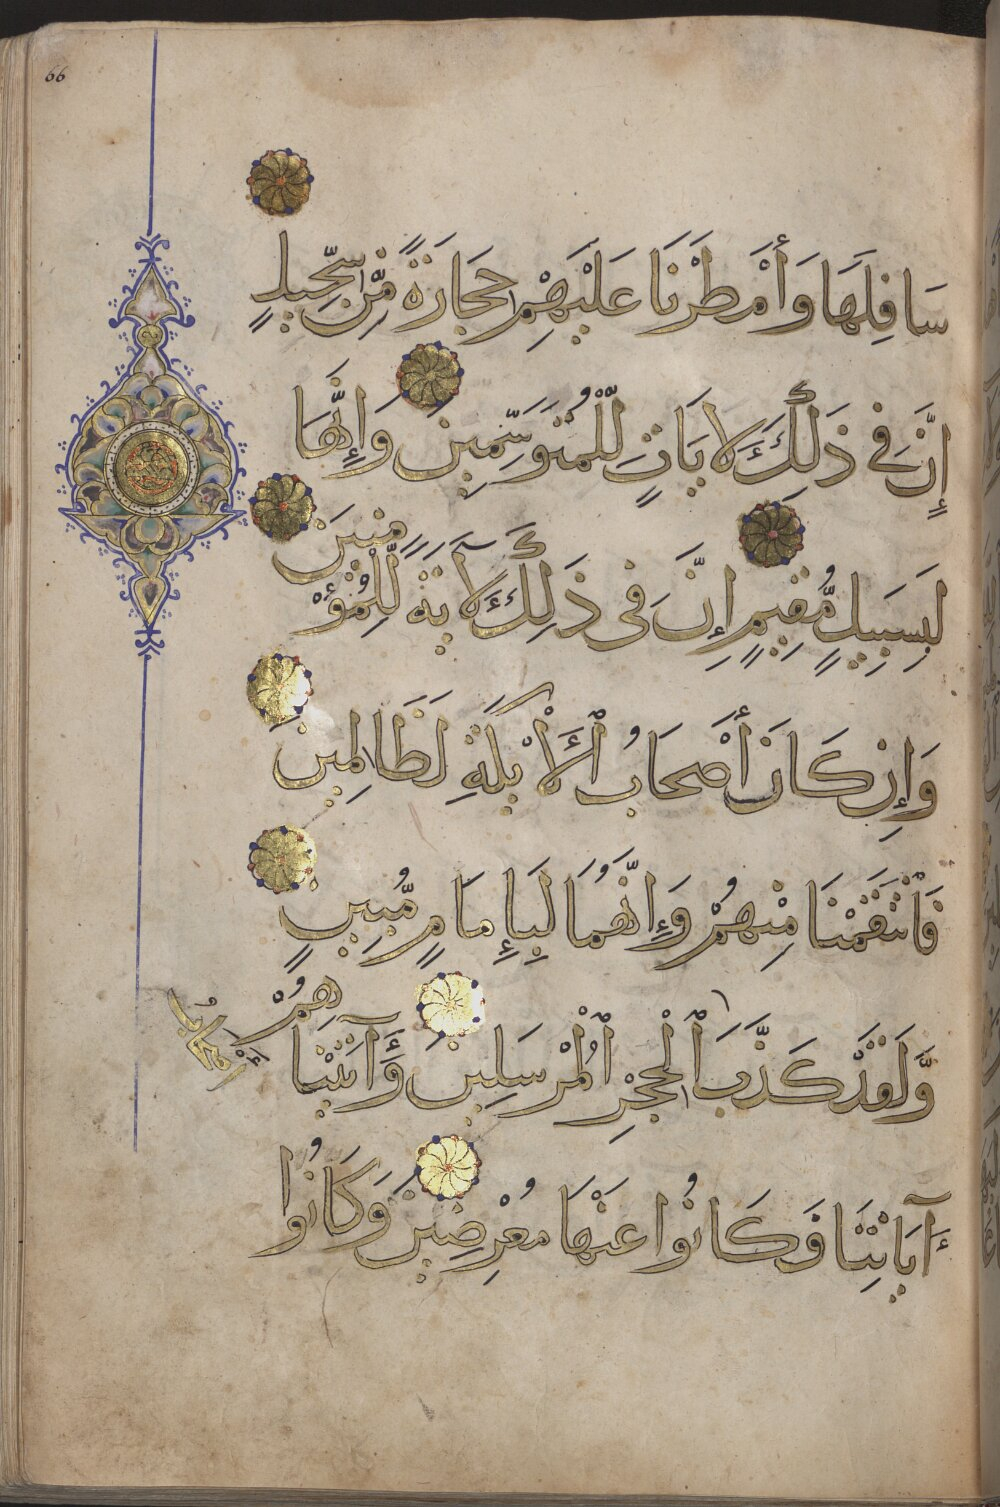 66
سَافِلَهَا وَأَمْطَرْنَا عَلَيْهِمْ حِجَارَةً مِّن سِجِّيلٍ
إِنَّ فِي ذَلِكَ لَأَيَاتٍ لِّلْمُتَوَسِّمِينَ وَإِنَّهَا
لَبِسَبِيلٍ مُّقِيمٍ إِنَّ فِي ذَلِكَ لَآيَةً لِّلْمُؤْمِنِينَ
وَإِن كَانَ أَصْحَابُ الْأَيْكَةِ لَظَالِمِينَ
فَانتَقَمْنَا مِنْهُمْ وَإِنَّهُمَا لَبِإِمَامٍ مُّبِينٍ
وَلَقَدْ كَذَّبَ الْحِجْرِ الْمُرْسَلِينَ وَآتَيْنَاهُمْ
أَصْحَابُ
آيَاتِنَا فَكَانُوا عَنْهَا مُعْرِضِينَ وَكَانُوا